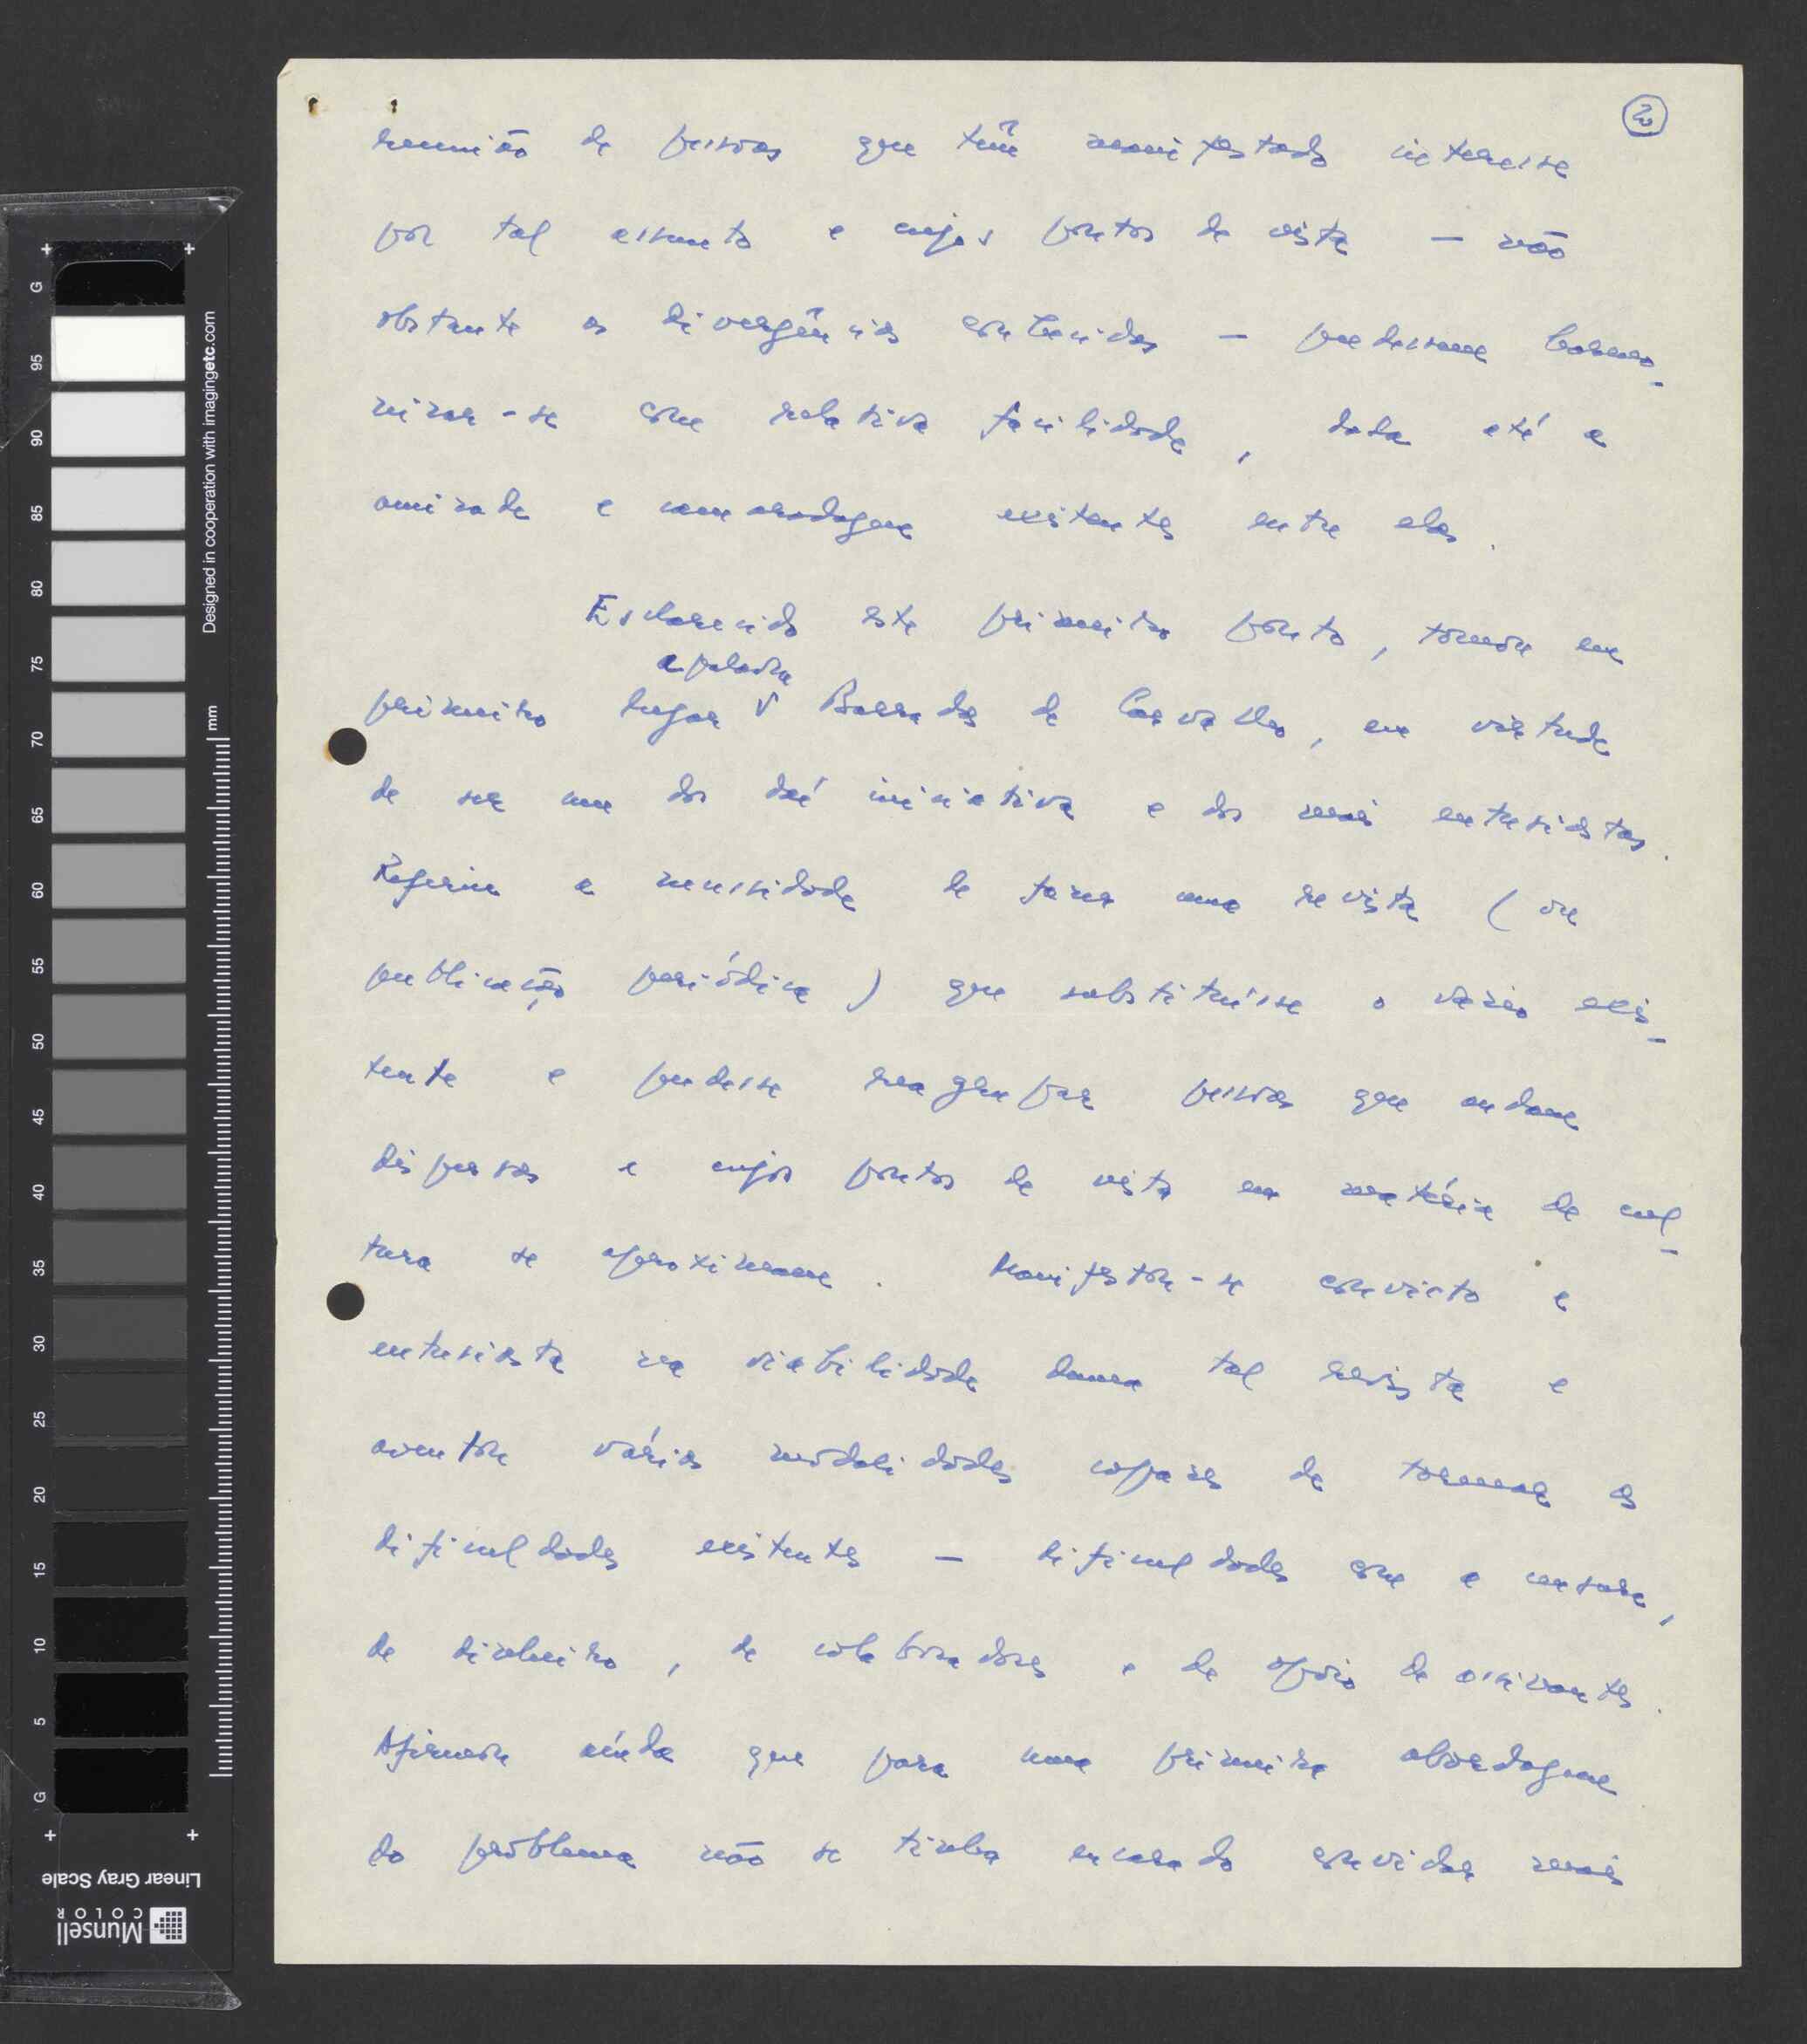 2
reunião de pessoas que têm manifestado interesse
por tal assunto e cujos pontos de vista — não
obstante as divergências conhecidas — pudessem harmo-
nizar-se com relativa facilidade, dada até a
amizade e camaradagem existentes entre elas.
Esclarecido este primeiro ponto, tomou em
a palavra
primeiro lugar V Barradas de Carvalho, em virtude
de ser um dos da iniciativa e dos mais entusiastas.
Referiu a necessidade de fazer uma revista (ou
publicação periódica) que substituísse o vazio exis-
tente e pudesse reagrupar pessoas que andam
dispersas e cujos pontos de vista em matéria de cul-
tura se aproximam. Manifestou-se convicto e
entusiasta na viabilidade duma tal revista e
aventou várias modalidades capazes de tornear as
dificuldades existentes — dificuldades com a censura,
de dinheiro, de colaboradores e de apoio de assinantes.
Afirmou ainda que para uma primeira abordagem
do problema não se tinha encarado convidar mais
Designed in cooperation with imagingetc.com
mm
G
95
90
85
80
75
70
65
60
55
50
45
40
35
30
25
20
15
10
5
G
Linear Gray Scale
Munsell
COLOR